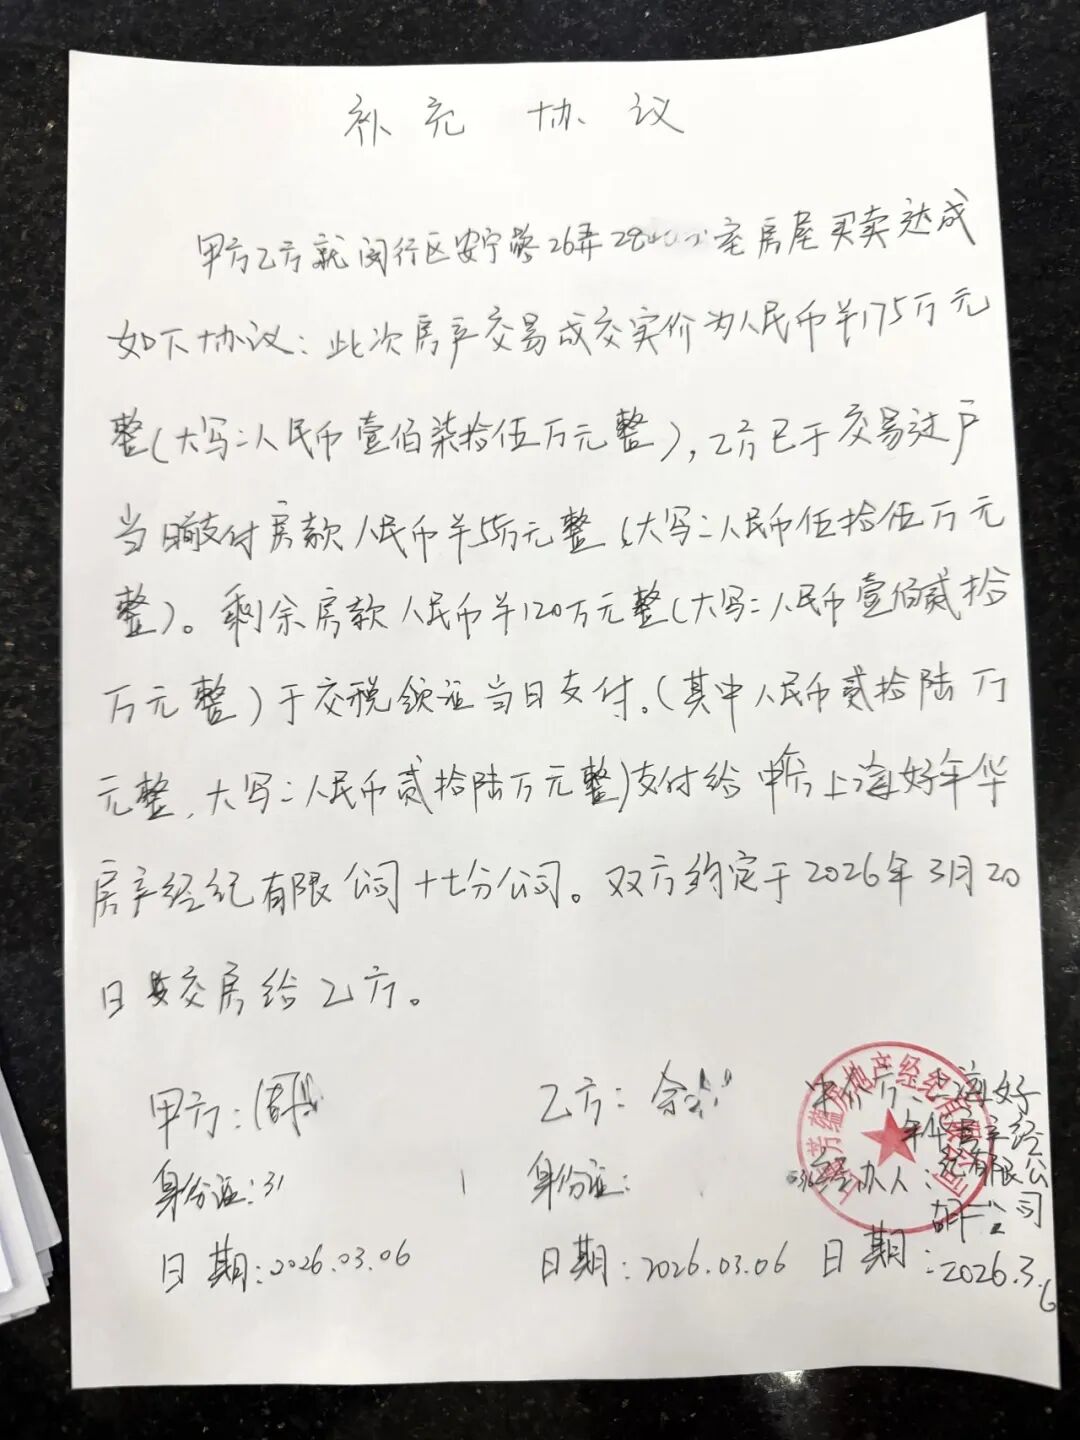 补充协议
甲方乙方就闵行区安宁路26弄28 室房屋买卖达成
如下协议：此次房产交易成交实价为人民币羊175万元
整(大写：人民币壹佰柒拾伍万元整)，乙方已于交易过户
当日前支付房款人民币羊55万元整(大写：人民币伍拾伍万元
整)。剩余房款人民币羊120万元整(大写：人民币壹佰贰拾
万元整)于交税领证当日支付。(其中人民币贰拾陆万
元整，大写：人民币贰拾陆万元整)支付给中介方上海好年华
房产经纪有限公司十七分公司。双方约定于2026年3月20
日 交房给乙方。
甲方：周
乙方：余
中介方：上海好
年华房产经
纪有限公
司
身份证：31
身份证：
经办人：胡
日期：2026.03.06
日期：2026.03.06
日期：2026.3.6
芳蕴房地产经纪有限公司